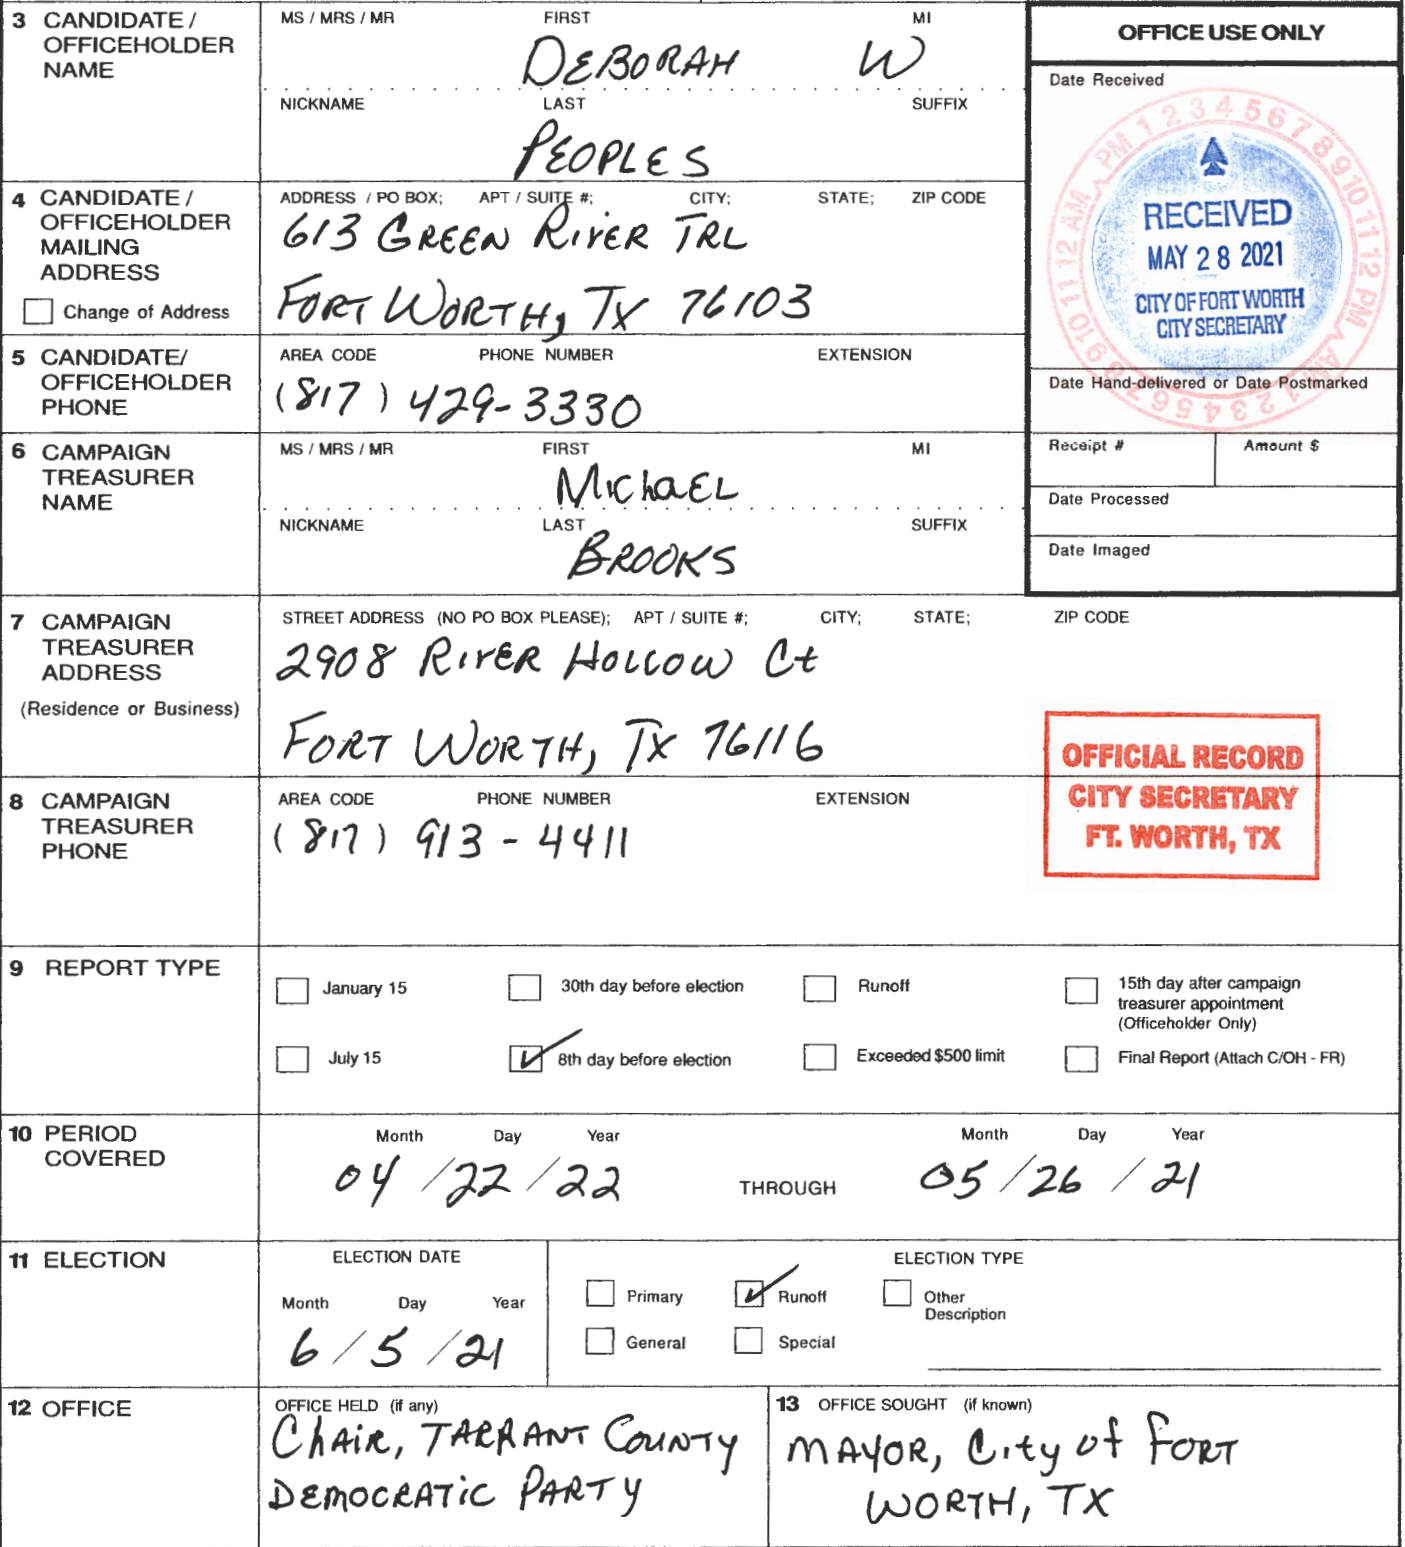 3 CANDIDATE / OFFICEHOLDER NAME
MS / MRS / MR FIRST MI
DEBORAH W
NICKNAME LAST SUFFIX
PEOPLES
OFFICE USE ONLY
Date Received
1 2 3 4 5 6 7 8 9 10 11 12 PM AM 1 2 3 4 5 6 7 8 9 10 11 12 AM PM
RECEIVED
MAY 28 2021
CITY OF FORT WORTH
CITY SECRETARY
Date Hand-delivered or Date Postmarked
Receipt # Amount $
Date Processed
Date Imaged
4 CANDIDATE / OFFICEHOLDER MAILING ADDRESS
Change of Address
ADDRESS / PO BOX; APT / SUITE #; CITY; STATE; ZIP CODE
613 GREEN RIVER TRL
FORT WORTH, TX 76103
5 CANDIDATE/ OFFICEHOLDER PHONE
AREA CODE PHONE NUMBER EXTENSION
(817) 429-3330
6 CAMPAIGN TREASURER NAME
MS / MRS / MR FIRST MI
MichaEL
NICKNAME LAST SUFFIX
BROOKS
7 CAMPAIGN TREASURER ADDRESS
(Residence or Business)
STREET ADDRESS (NO PO BOX PLEASE); APT / SUITE #; CITY; STATE; ZIP CODE
2908 RIVER HOLLOW Ct
FORT WORTH, TX 76116
OFFICIAL RECORD
CITY SECRETARY
FT. WORTH, TX
8 CAMPAIGN TREASURER PHONE
AREA CODE PHONE NUMBER EXTENSION
(817) 913-4411
9 REPORT TYPE
January 15 30th day before election Runoff 15th day after campaign
treasurer appointment
(Officeholder Only)
July 15 8th day before election Exceeded $500 limit Final Report (Attach C/OH - FR)
10 PERIOD COVERED
Month Day Year Month Day Year
04/22/22 THROUGH 05/26/21
11 ELECTION
ELECTION DATE
Month Day Year
6/5/21
ELECTION TYPE
Primary Runoff Other
Description
General Special
12 OFFICE
OFFICE HELD (if any)
Chair, TARRANT COUNTY
DEMOCRATIC PARTY
13 OFFICE SOUGHT (if known)
MAYOR, City of FORT
WORTH, TX